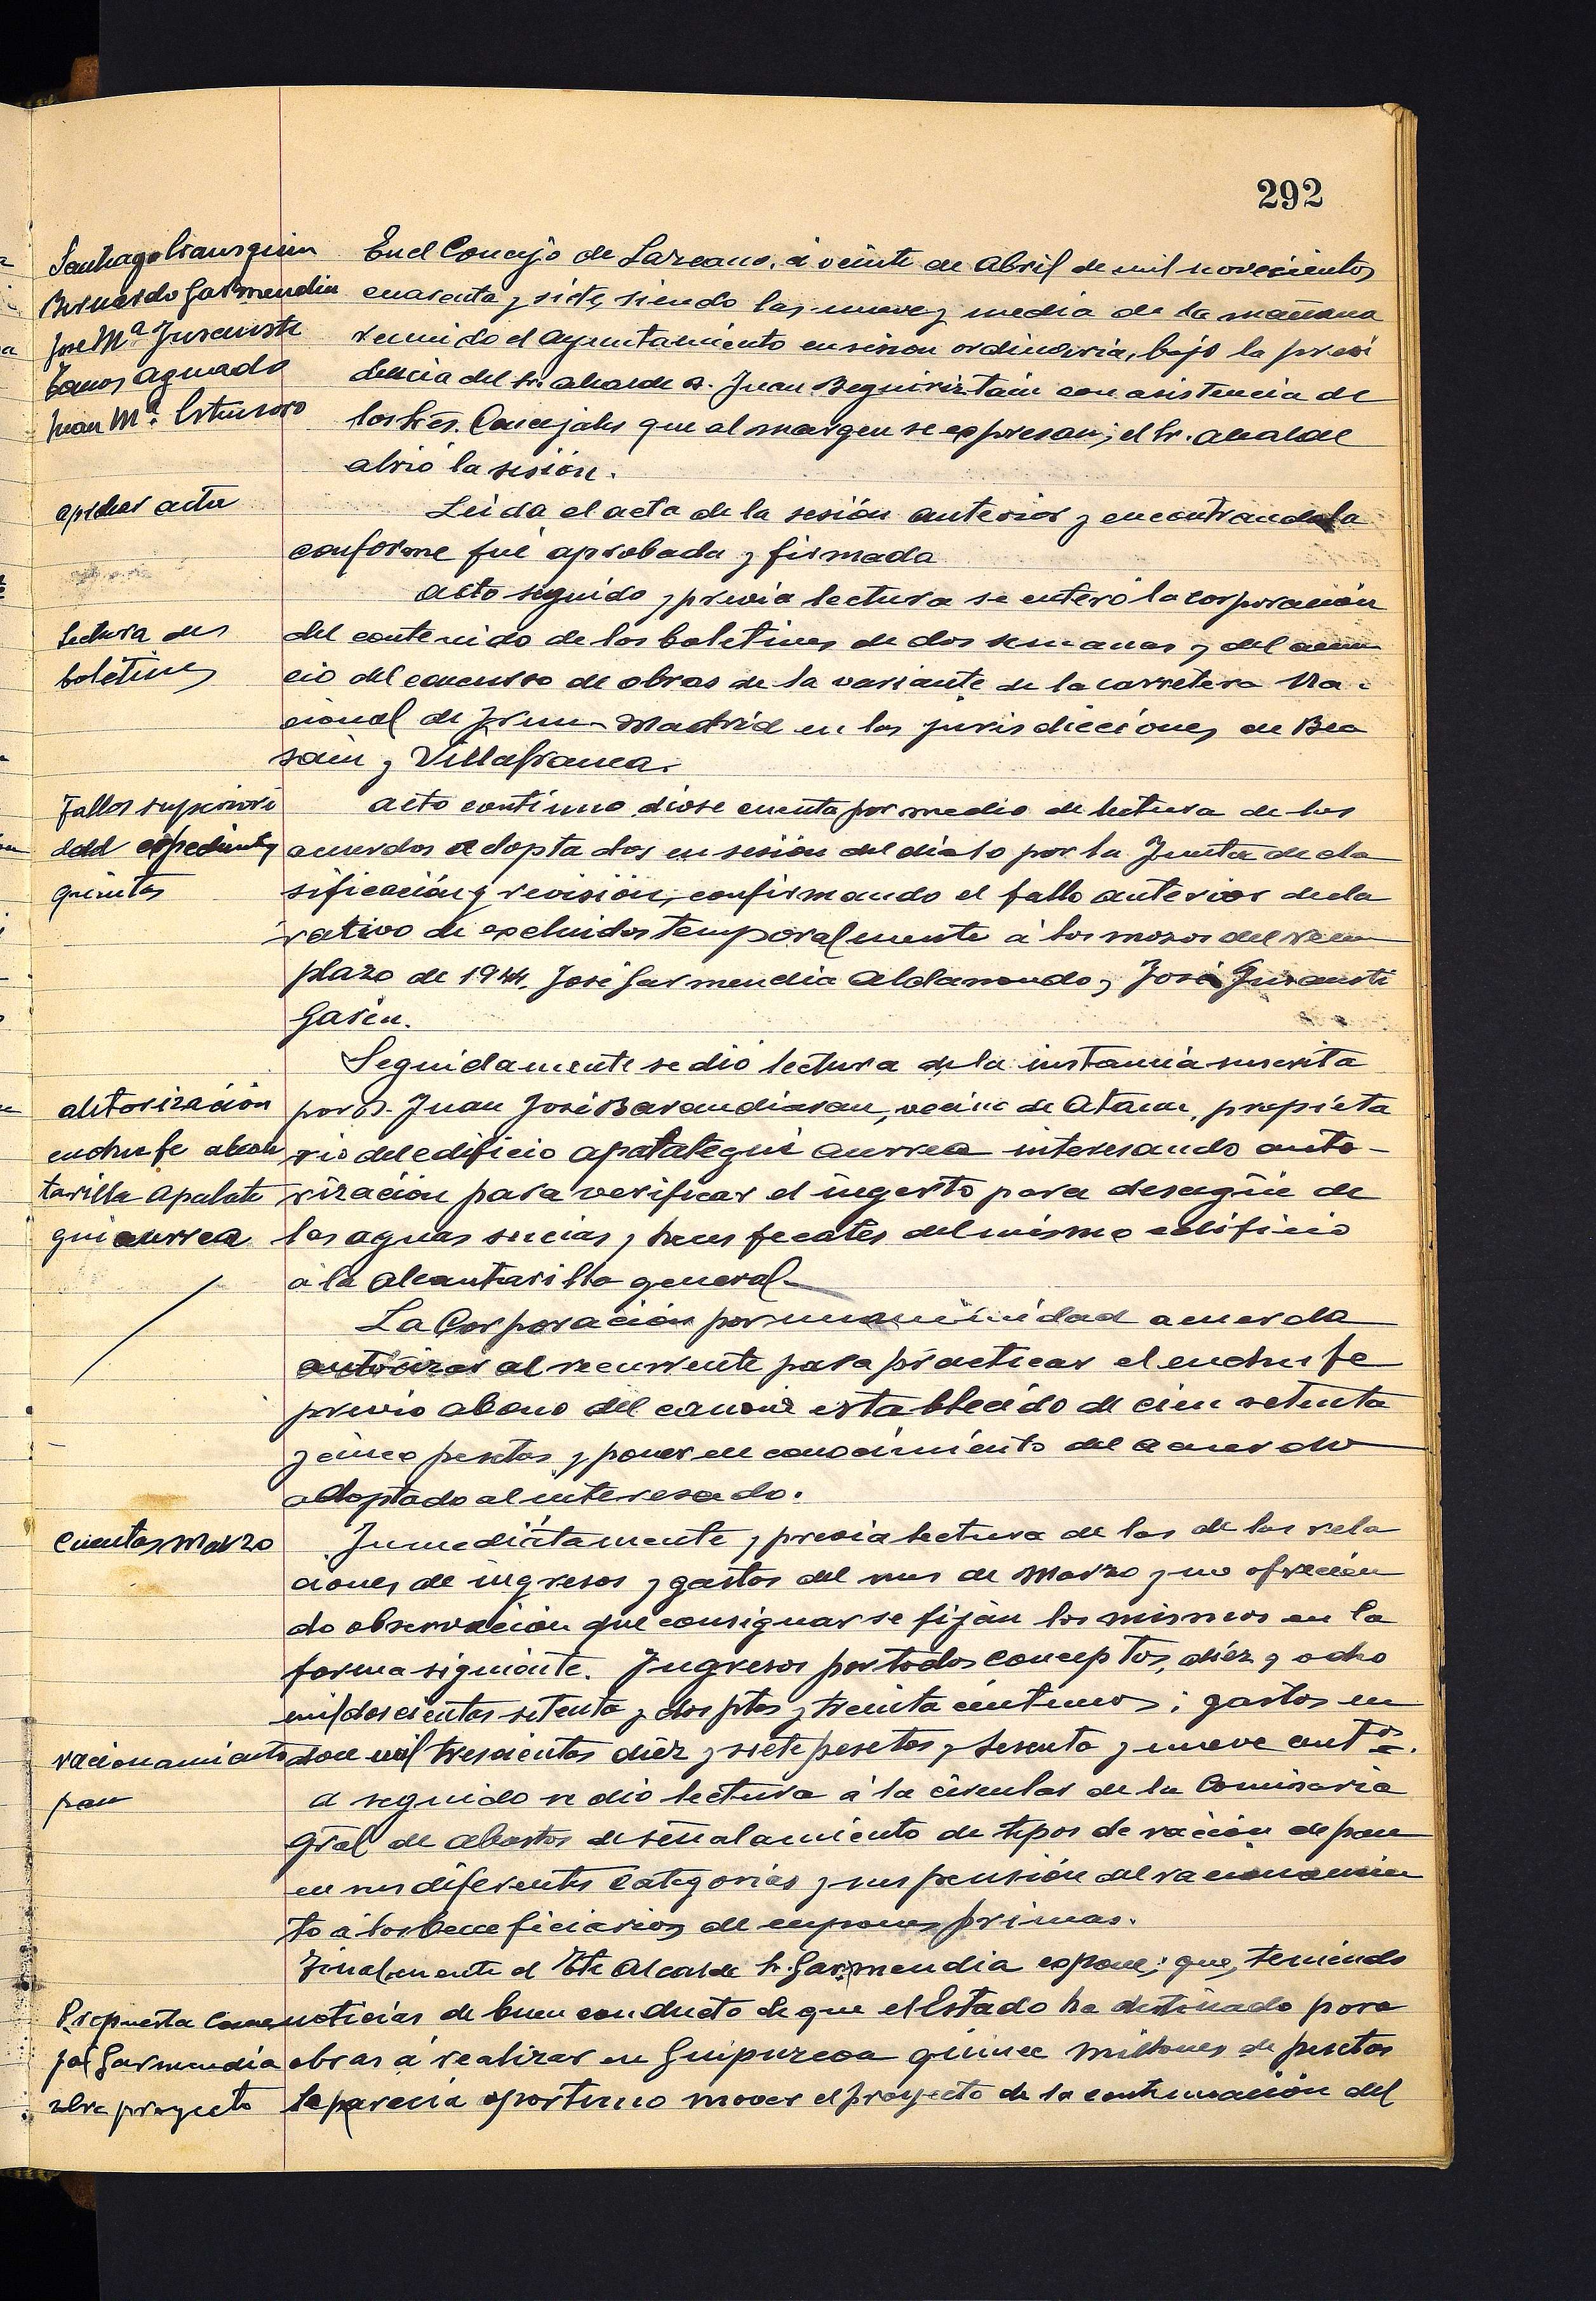 292
Santiago Irausquin
Bernardo Garmendia
José Mª Jusausti
Tomos Aguado
Juan Mª.
En el Concejo de Lazcano, á veinte de Abril de mil novecientos
cuarenta y siete, siendo las nueve y media de la mañana
reunido el Ayuntamiento en sesion ordinaria, bajo la presi
dencia del Sr. Alcalde D. Juan Beguiristain con asistencia de
los Sres. Concejales que al margen se expresan; el Sr. Alcalde
abrió la sesión.
aprobar acta
Leida el acta de la sesión anterior y encontrandola
conforme fué aprobada y firmada
Acto seguido y previa lectura se enteró la corporación
Lectura de
boletines
del contenido de los boletines de dos semanas y del anun
cio del concurso de obras de la variante de la carretera Na-
cional de Irun-Madrid en las jurisdicciones de Bea
sain y Villafranca.
Fallos superiori
dad expedientes
quintas
Acto continuo diose cuenta por medio de lectura de los
acuerdos adoptados en sesión del dia 10 por la Junta de cla
sificación y revisión, confirmando el fallo anterior decla
rativo de excluidos temporalmente á los mozos del reem
plazo de 1944, José Garmendia Aldanondo y José Jusausti
Garin.
Seguidamente se dió lectura de la instancia suscrita
autorización
enchufe alcan
tarilla Apalate
gui aurrea
por D. Juan José Barandiaran, vecino de Ataun, propieta
rio del edificio Apalategui aurrea interesando auto-
rización para verificar el ingerto para desagüe de
las aguas sucias y heces fecales del mismo edificio
á la alcantarilla general.
La Corporación por unanimidad acuerda
autorizar al recurrente para practicar el enchufe
previo abono del canon establecido de cien setenta
y cinco pesetas y poner en conocimiento del acuerdo
adoptado al interesado.
Cuentas Marzo
Inmediatamente y previa lectura de las de las rela
ciones de ingresos y gastos del mes de Marzo y no ofrecien
do observación que consignar se fijan los mismos en la
forma siguiente. Ingresos por todos conceptos, diez y ocho
mil doscientas setenta y dos ptas y treinta centimos; gastos en
racionamiento
pan
doce mil trescientas diez y siete pesetas y sesenta y nueve cent.os
A seguido se dió lectura á la circular de la Comisaria
Gral de Abastos de señalamiento de tipos de ración de pan
en sus diferentes categorias y suspensión del racionamien
to á los beneficiarios de cupones primas.
Finalmente el Tte Alcalde Sr. Garmendia expone; que, teniendo
Propuesta Conce
jal Garmendia
sobre proyecto
noticias de buen conducto de que el Estado ha destinado para
obras á realizar en Guipuzcoa quince millones de pesetas
le parecia oportuno mover el proyecto de la continuación del